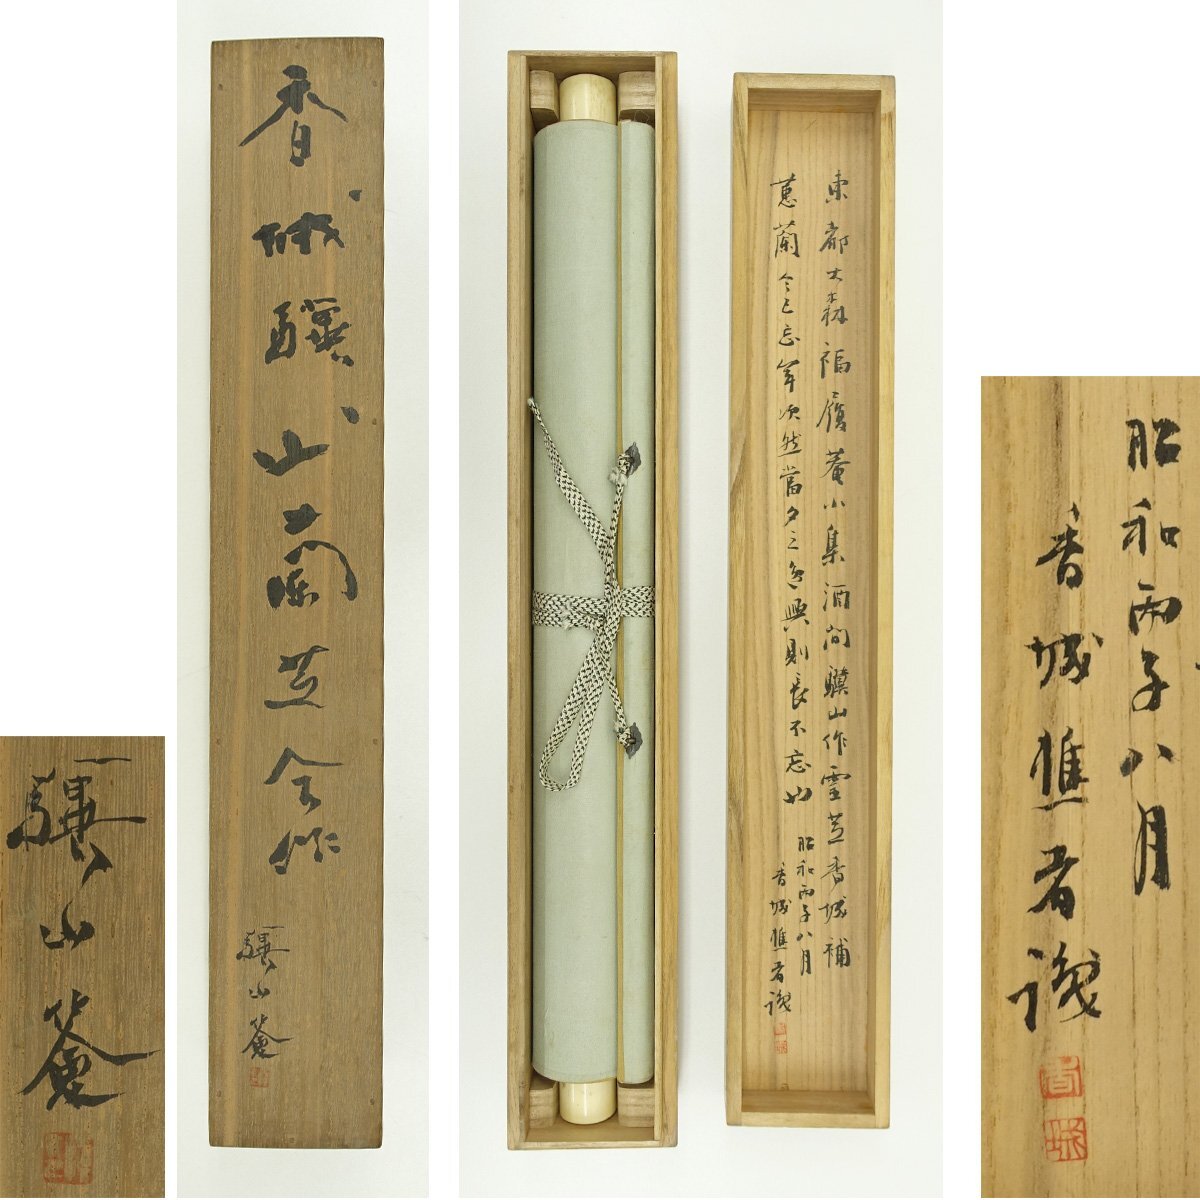 香城驥山蘭芝合作
驥山簽
驥山簽
東都大森福履菴小集酒間驥山作霊芝香城補
蕙蘭今已忘年次然當夕之逸興則長不忘也
昭和丙子八月
香城樵者識
昭和丙子八月
香城樵者識